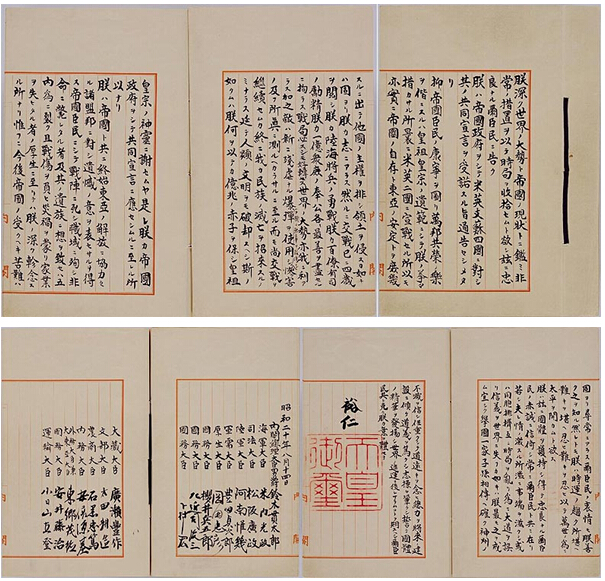 朕深ク世界ノ大勢ト帝國ノ現狀トニ鑑ミ非
常ノ措置ヲ以テ時局ヲ收拾セムト欲シ茲ニ忠
良ナル爾臣民ニ告ク
朕ハ帝國政府ヲシテ米英支蘇四國ニ對シ
其ノ共同宣言ヲ受諾スル旨通告セシメタ
リ
抑〻帝國臣民ノ康寧ヲ圖リ萬邦共榮ノ樂
ヲ偕ニスルハ皇祖皇宗ノ遺範ニシテ朕ノ拳々
措カサル所曩ニ米英二國ニ宣戰セル所以モ
亦實ニ帝國ノ自存ト東亞ノ安定トヲ庶幾
スルニ出テ他國ノ主權ヲ排シ領土ヲ侵スカ如キ
ハ固ヨリ朕カ志ニアラス然ルニ交戰已ニ四歲
ヲ閱シ朕カ陸海將兵ノ勇戰朕カ百僚有司
ノ勵精朕カ一億衆庶ノ奉公各〻最善ヲ盡セルニ
拘ラス戰局必スシモ好轉セス世界ノ大勢亦我ニ利ア
ラス加之敵ハ新ニ殘虐ナル爆彈ヲ使用シテ頻ニ無辜ヲ殺傷シ慘害
ノ及フ所眞ニ測ルヘカラサルニ至ル而モ尚交戰ヲ
繼續セムカ終ニ我カ民族ノ滅亡ヲ招來スル
ノミナラス延テ人類ノ文明ヲモ破却スヘシ斯ノ
如クムハ朕何ヲ以テカ億兆ノ赤子ヲ保シ皇祖
皇宗ノ神靈ニ謝セムヤ是レ朕カ帝國
政府ヲシテ共同宣言ニ應セシムルニ至レル所
以ナリ
朕ハ帝國ト共ニ終始東亞ノ解放ニ協力セ
ル諸盟邦ニ對シ遺憾ノ意ヲ表セサルヲ得
ス帝國臣民ニシテ戰陣ニ死シ職域ニ殉シ非
命ニ斃レタル者及其ノ遺族ニ想ヲ致セハ五
內爲ニ裂ク且戰傷ヲ負ヒ災禍ヲ蒙リ家業
ヲ失ヒタル者ノ厚生ニ至リテハ朕ノ深ク軫念ス
ル所ナリ惟フニ今後帝國ノ受クヘキ苦難ハ
固ヨリ尋常ニアラス爾臣民ノ衷情モ朕善
ク之ヲ知ル然レトモ朕ハ時運ノ趨ク所堪ヘ
難キヲ堪ヘ忍ヒ難キヲ忍ヒ以テ萬世ノ爲ニ
太平ヲ開カムト欲ス
朕ハ茲ニ國體ヲ護持シ得テ忠良ナル爾臣
民ノ赤誠ニ信倚シ常ニ爾臣民ト共ニ在リ
若シ夫レ情ノ激スル所濫ニ事端ヲ滋クシ或
ハ同胞排擠互ニ時局ヲ亂リ爲ニ大道ヲ誤
リ信義ヲ世界ニ失フカ如キハ朕最モ之ヲ戒
ム宜シク擧國一家子孫相傳ヘ確ク神州ノ
不滅ヲ信シ任重クシテ道遠キヲ念ヒ總力ヲ將來ノ建
設ニ傾ケ道義ヲ篤クシ志操ヲ鞏クシ誓テ國體
ノ精華ヲ發揚シ世界ノ進運ニ後レサラムコトヲ期スヘシ爾臣
民其レ克ク朕カ意ヲ體セヨ
裕仁
天皇
御璽
昭和二十年八月十四日
内閣總理大臣男爵 鈴木貫太郎
海軍大臣 米内光政
司法大臣 松阪廣政
陸軍大臣 阿南惟幾
軍需大臣 豐田貞次郎
厚生大臣 岡田忠彦
國務大臣 櫻井兵五郎
國務大臣 左近司政三
國務大臣 下村宏
大藏大臣 廣瀨豐作
文部大臣 太田耕造
農商大臣 石黒忠篤
内務大臣 安倍源基
外務大臣兼大東亞大臣 東郷茂德
國務大臣 安井藤治
運輸大臣 小日山直登